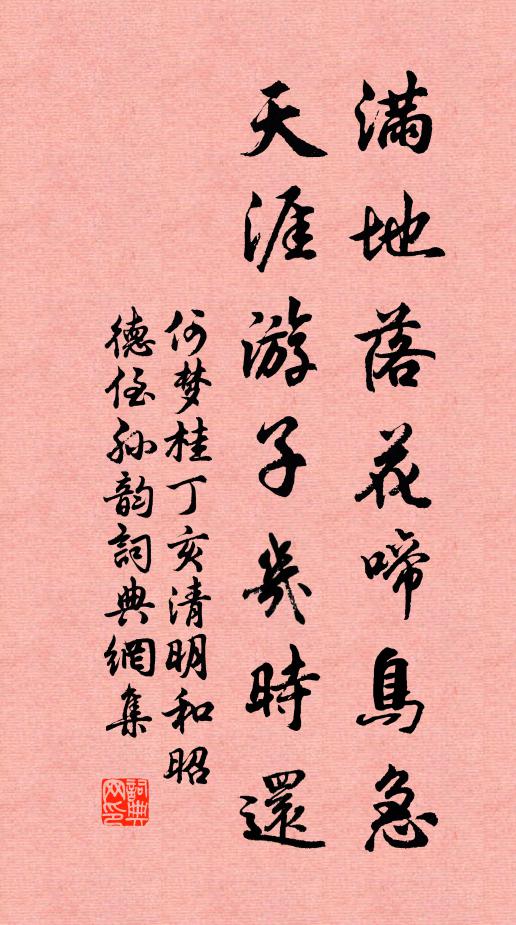 满地落花啼鳥急
天涯游子幾時還
何梦桂丁亥清明和昭
德侄孙韵詞典網集
詞典网印